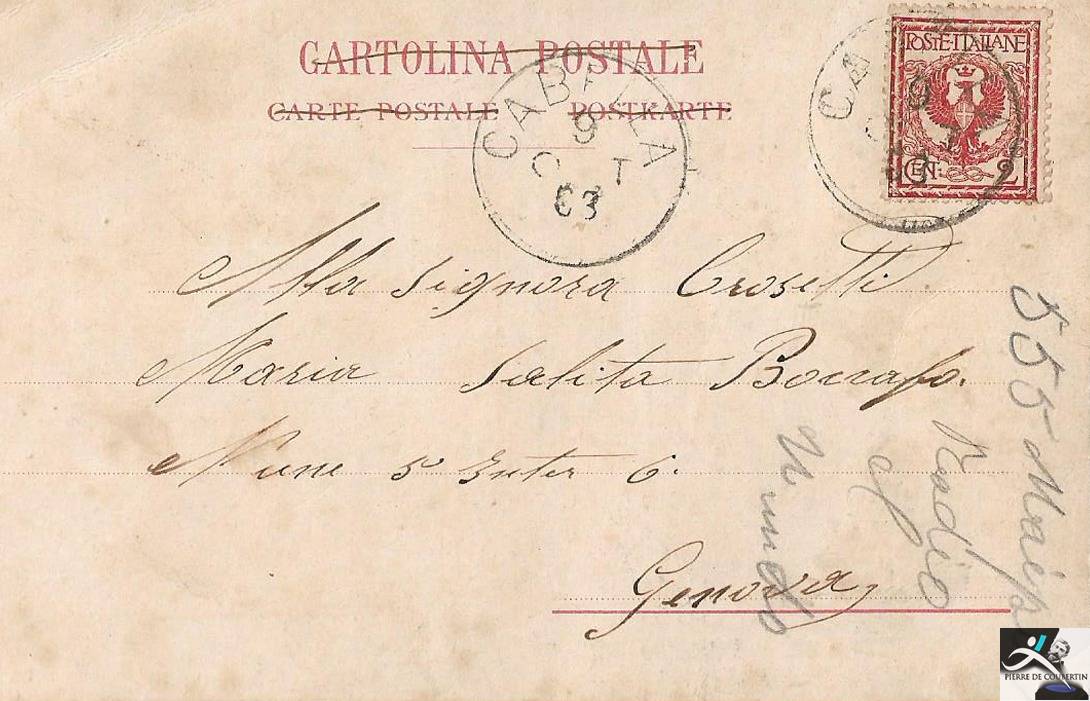 CARTOLINA POSTALE
CARTE POSTALE POSTKARTE
CABELLA
9
OTT
03
POSTE·ITALIANE
CEN. 2
CA
9
03
Alla Signora Crosetti
Maria Salita
Nune 5 Inter 6.
Genova
555 Maip
Radio
el
Mundo
PIERRE DE COUBERTIN